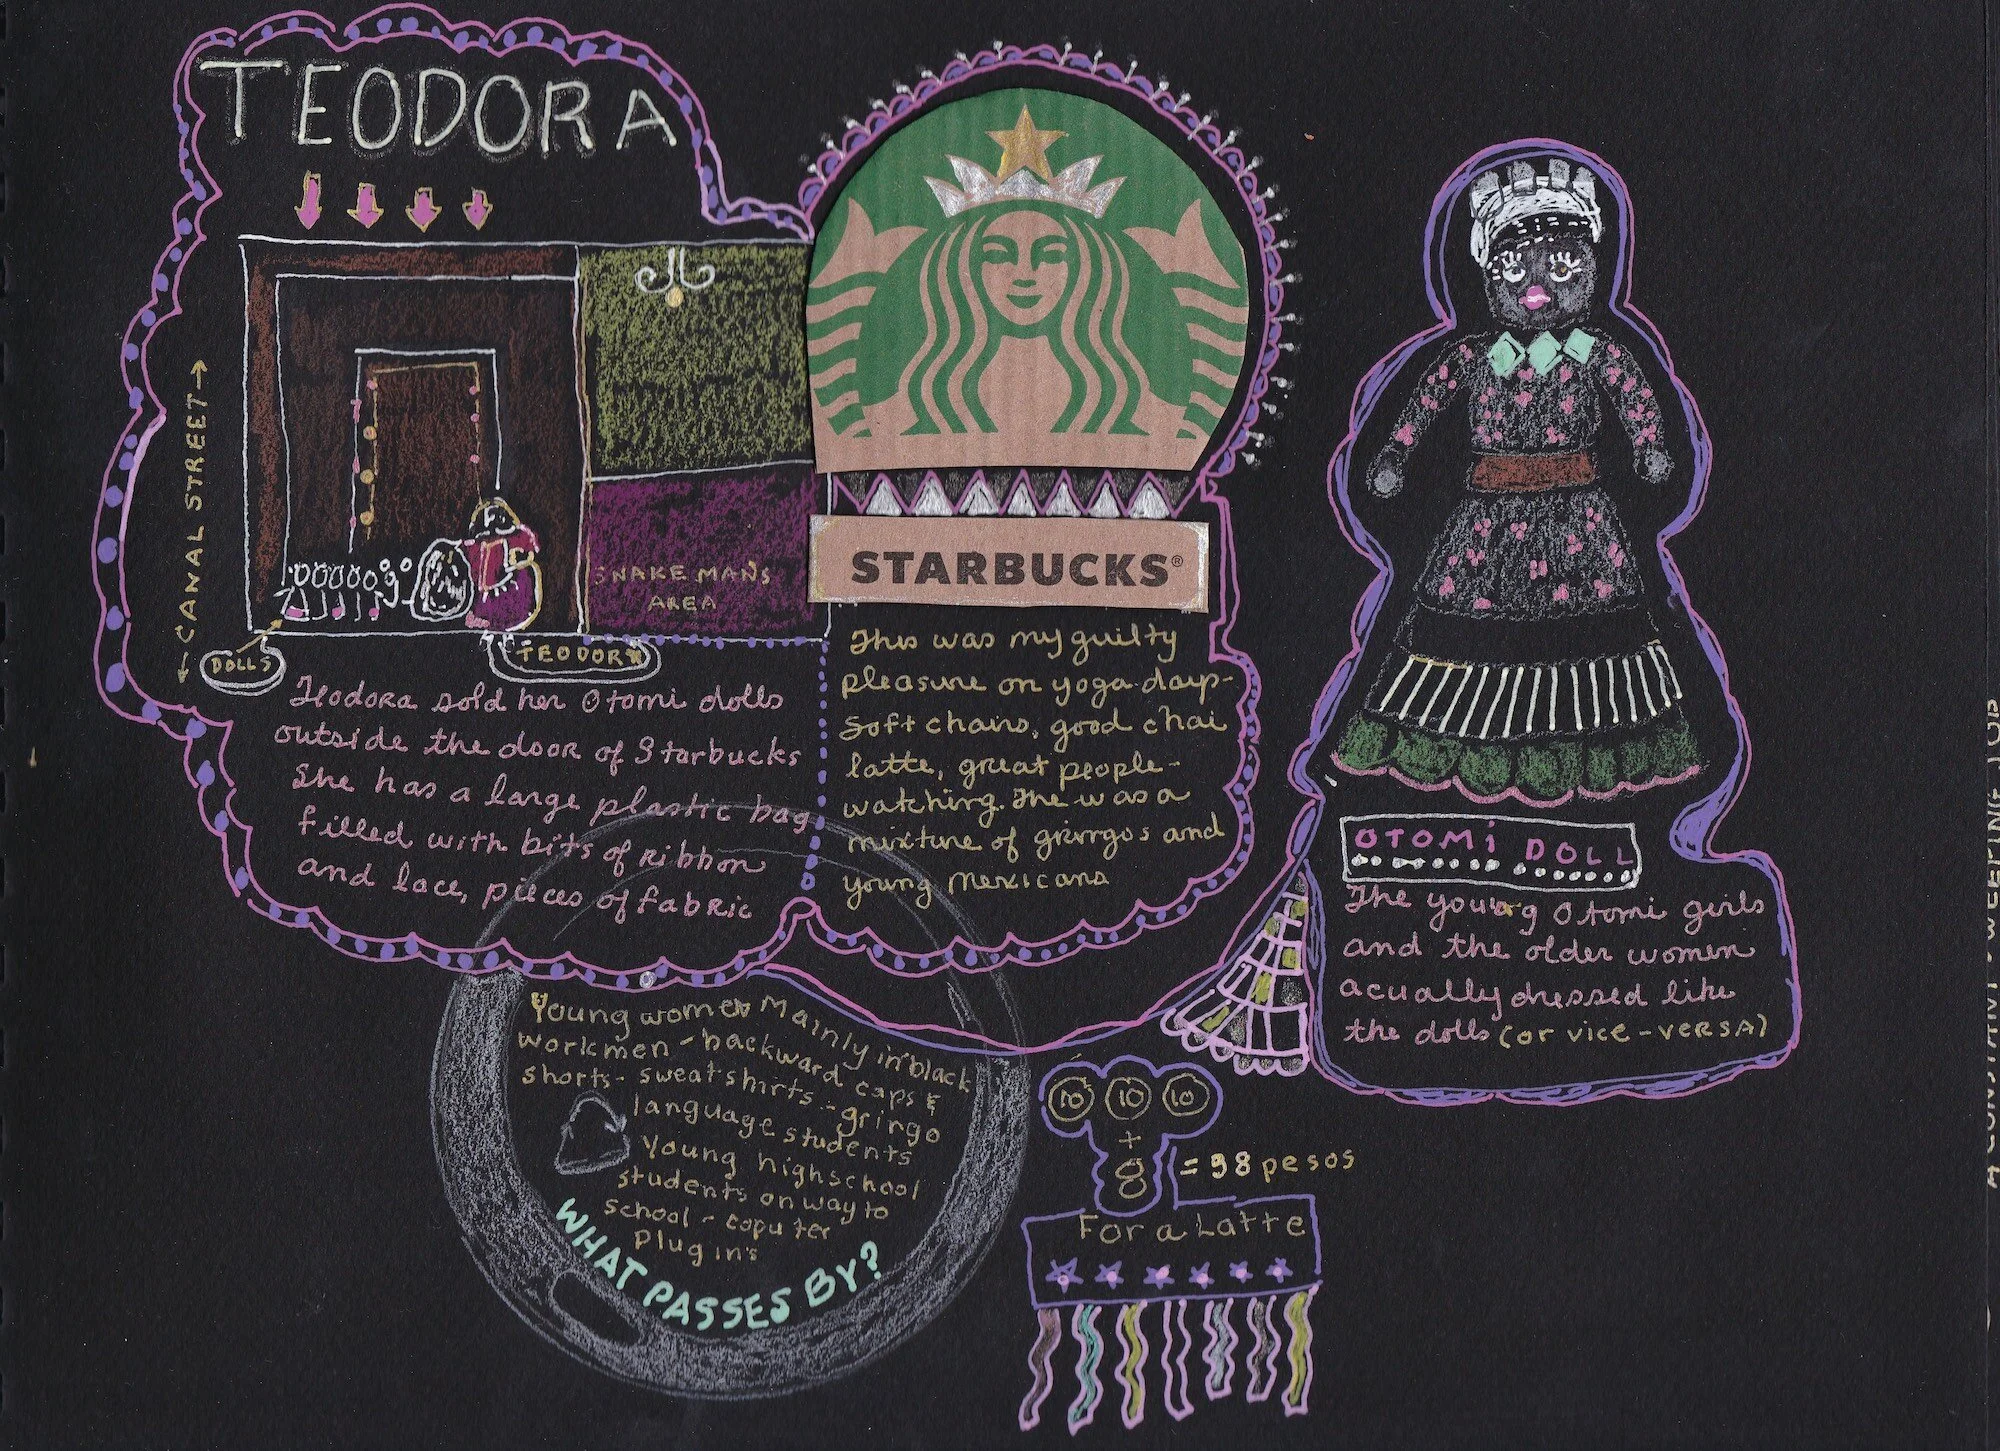 TEODORA
← CANAL STREET →
SNAKE MANS
AREA
DOLLS
TEODORA
Teodora sold her Otomi dolls
outside the door of Starbucks
She has a large plastic bag
filled with bits of ribbon
and lace, pieces of fabric
STARBUCKS®
This was my guilty
pleasure on yoga days-
soft chairs, good chai
latte, great people-
watching. The was a
mixture of gringos and
young Mexicans
OTOMI DOLL
The young Otomi girls
and the older women
acually dressed like
the dolls (or vice-versa)
Young women mainly in black
workmen - backward caps &
shorts - sweatshirts - gringo
language students
Young highschool
students on way to
school - coputer
plugin's
WHAT PASSES BY?
10 10 10
+
8
= 38 pesos
For a Latte